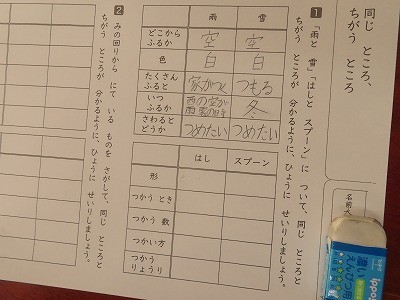 同じ ところ、
ちがう ところ
名前
1 「雨と 雪」「はしと スプーン」に ついて、同じ ところと
ちがう ところが 分かるように、ひょうに せいりしましょう。
雨 雪
どこから ふるか 空 空
色 白 白
たくさん ふると 家がつく つもる
いつ ふるか 冬
さわると どうか つめたい つめたい
はし スプーン
形
つかう とき
つかう 数
つかい方
つかう りょうり
2 みの回りから にて いる ものを さがして、同じ ところと
ちがう ところが 分かるように、ひょうに せいりしましょう。